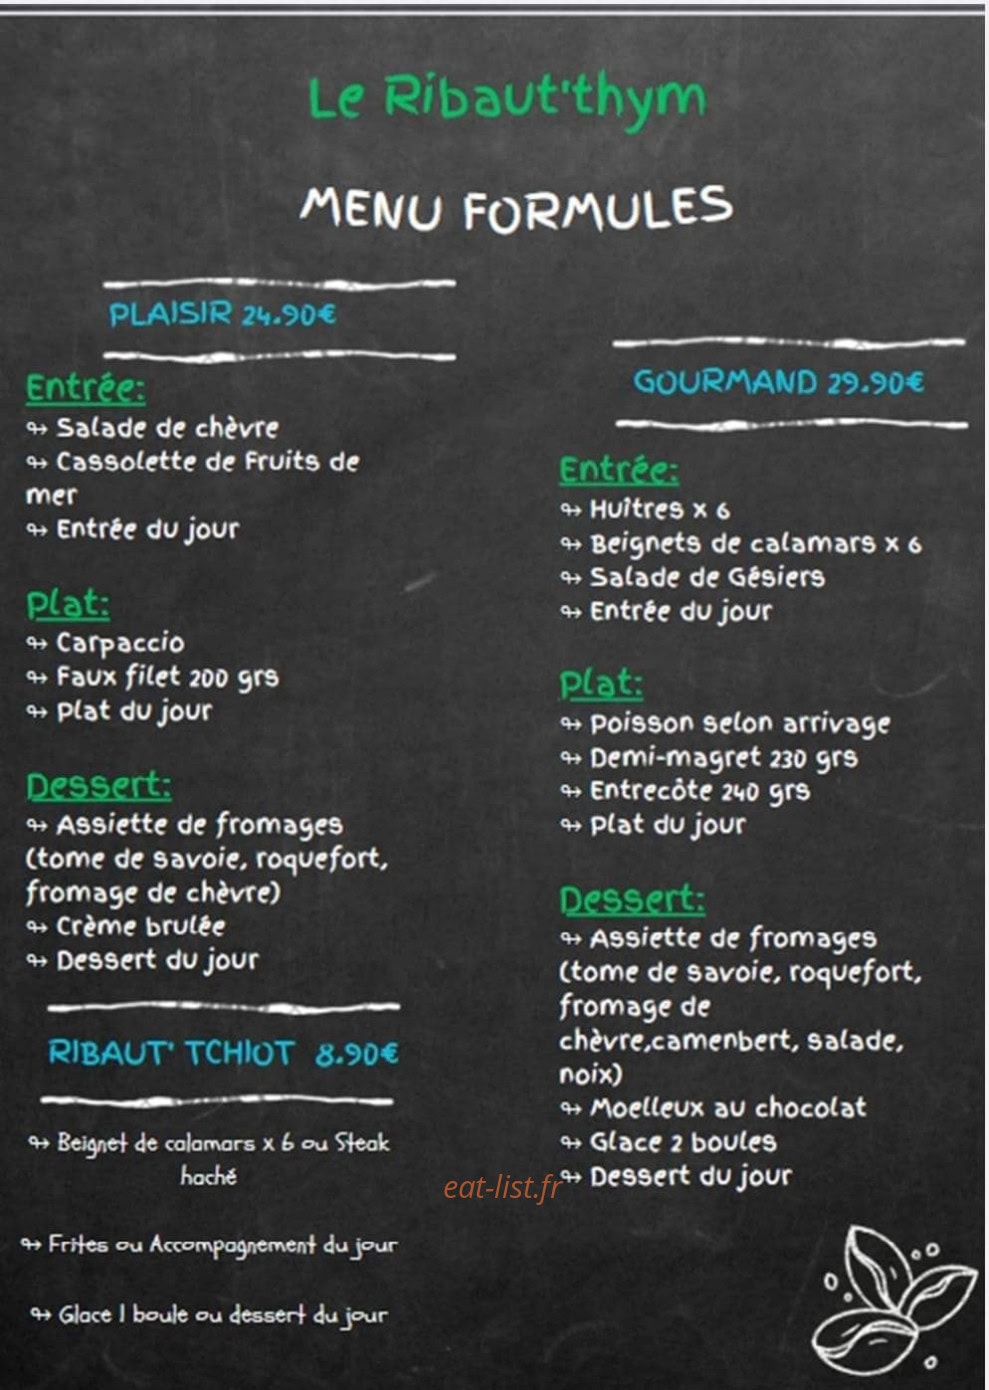 Le Ribaut'thym
MENU FORMULES
PLAISIR 24.90€
Entrée:
↬ Salade de chèvre
↬ Cassolette de Fruits de
mer
↬ Entrée du jour
Plat:
↬ Carpaccio
↬ Faux filet 200 grs
↬ Plat du jour
Dessert:
↬ Assiette de fromages
(tome de savoie, roquefort,
fromage de chèvre)
↬ Crème brulée
↬ Dessert du jour
RIBAUT' TCHIOT 8.90€
↬ Beignet de calamars x 6 ou Steak
haché
↬ Frites ou Accompagnement du jour
↬ Glace 1 boule ou dessert du jour
GOURMAND 29.90€
Entrée:
↬ Huîtres x 6
↬ Beignets de calamars x 6
↬ Salade de Gésiers
↬ Entrée du jour
Plat:
↬ Poisson selon arrivage
↬ Demi-magret 230 grs
↬ Entrecôte 240 grs
↬ Plat du jour
Dessert:
↬ Assiette de fromages
(tome de savoie, roquefort,
fromage de
chèvre,camenbert, salade,
noix)
↬ Moelleux au chocolat
↬ Glace 2 boules
↬ Dessert du jour
eat-list.fr